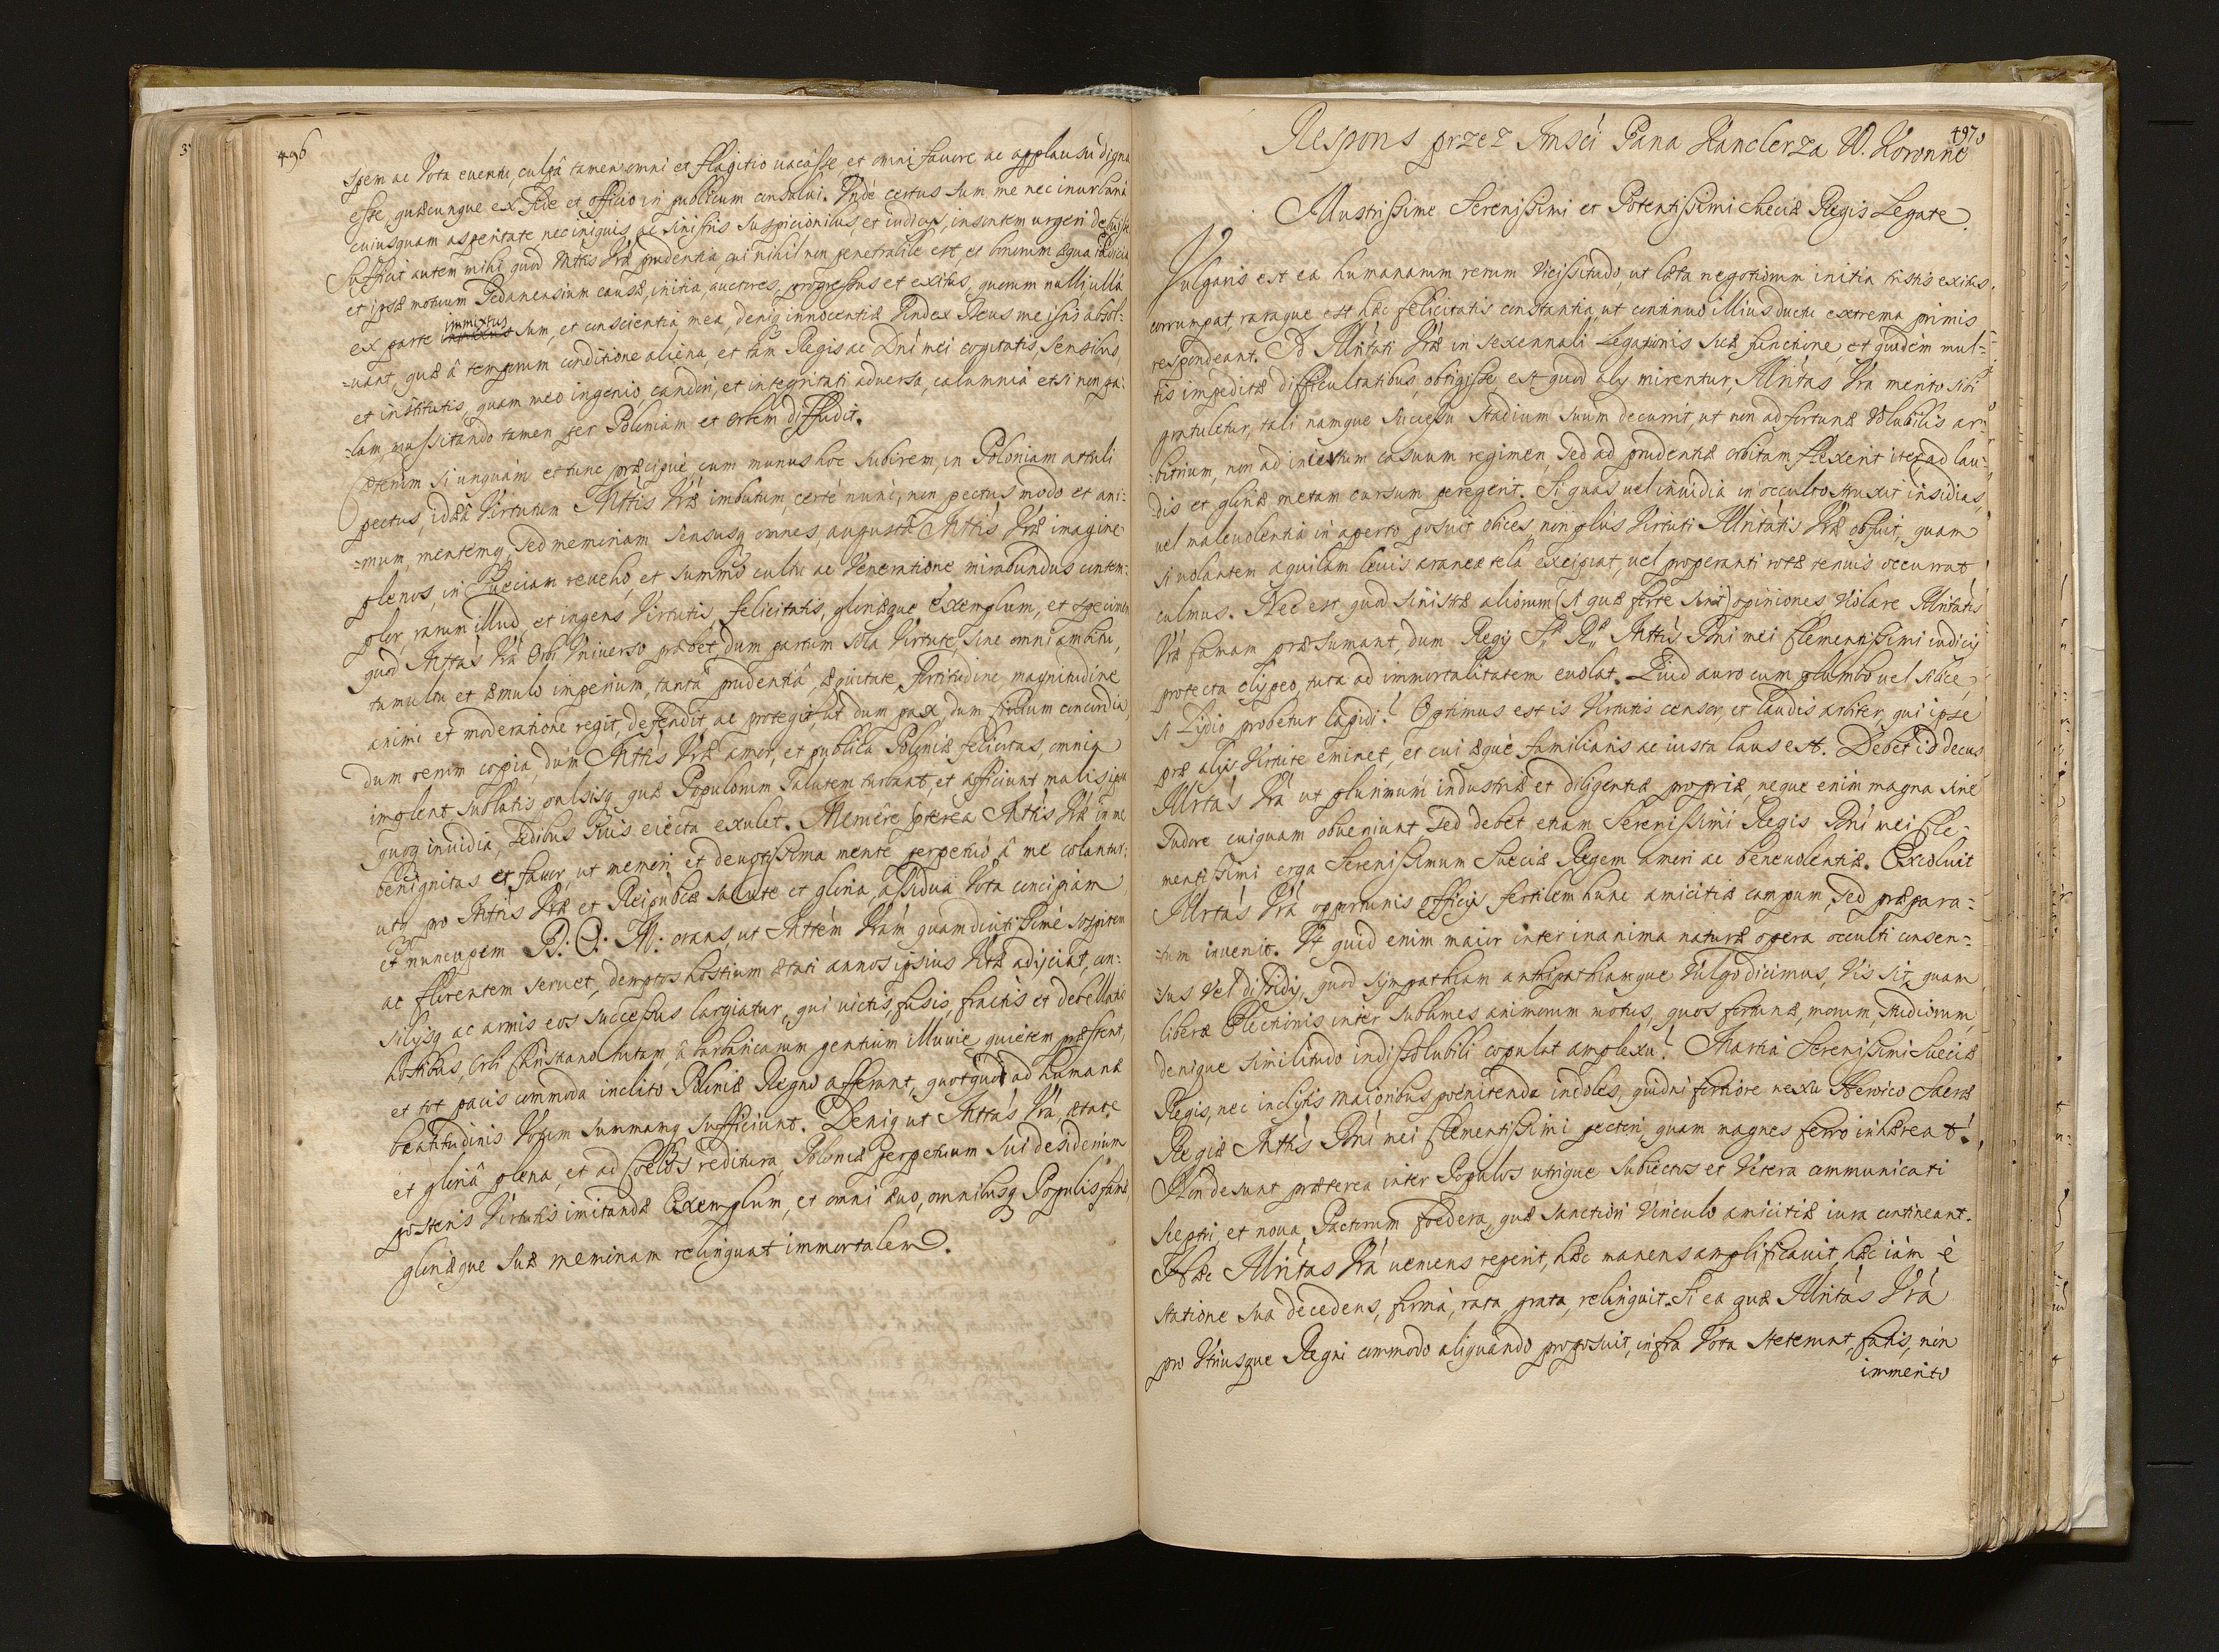 496
spem ac Vota euentu, culpâ tamen omni et flagitio uacâsse et omni fauore ac applausu digna
esse, quæcunque ex fide et officio in publicum consului. Unde certus sum me nec inurbana
cuiusquam asperitate, nec iniquis, ac sinistris suspicionibus, et iudicijs, insontem urgeri debuisse
Sufficit autem mihi, quod Mttis Vræ prudentia, cui nihil non penetrabile est, et bonorum æqua iudicia
et ipsæ motuum Pedanensium causæ, initia, auctores, progressus et exitus, quorum nulli ullâ
ex parte immixtus sum, et conscientia mea, deniq innocentiæ Vindex Deus me isto absol:
=uant, quæ â temporum conditione aliena, et tam Regis ac Dni mei cogitatis, sensibus,
et institutis, quam meo ingenio, candori, et integritati aduersa, calumnia etsi non pa:
=lam, mussitando tamen per Poloniam et orbem diffudit.
Cæterum si unquam, et tunc præcipuè cum munus hoc subirem, in Poloniam attuli
pectus, ideâ Virtutum Mttis Vræ imbutum, certè nunc, non pectus modo et ani:
=mum, mentemq, sed memoriam sensusq omnes, augustâ Mttis Vræ imagine
plenos, in Sueciam reueho, et summo cultu ac Veneratione mirabundus contem:
plor, rarum illud, et ingens Virtutis, felicitatis, gloriæque exemplum, et specimen
quod Mttas Vra Orbi Vniuerso præbet, dum partum sola Virtute, sine omni ambitu,
tumultu et æmulo imperium, tantâ prudentiâ, æquitate, fortitudine, magnitudine
animi et moderatione regit, defendit, ac protegit, ut dum pax, dum ciuium concordia,
dum rerum copia, dum Mttis Vræ amor, et publica Poloniæ felicitas, omnia
implent, sublatis, pulsisq quæ Populorum Salutem turbant, et afficiunt malis, ipsa
quoq inuidia, sedibus suis eiecta exulet. Memere præterea Mttis Vræ in me
benignitas et fauor, ut memori et deuotissima mente perpetuò â me colantur;
utq pro Mttis Vræ et Reipublicæ salute et gloria, assidua Vota concipiam
et nuncupem D: O: M: orans, ut Mttem Vram quamdiutissimè sospitem
ac florentem seruet, demptos hostium ætati annos ipsius Vitæ adijciat, con:
silijsq ac armis eos successus largiatur, qui uictis, fusis, fractis et debellatis
hostibus, Orbi Christiano tutam, â barbaricarum gentium illuuie quietem præstent,
et tot pacis commoda inclito Poloniæ Regno afferant, quotquot ad humanæ
beatitudinis Votum summamq sufficiunt. Deniq ut Mttas Vra, ætate
et gloriâ plena, et ad Coelos reditura, Poloniæ perpetuum sui desiderium
posteris Virtutis imitandæ Exemplum, et omni æuo, omnibusq Populis famæ,
gloriæque suæ memoriam relinquat immortalem.
497
Respons przez Jmsci Pana Kanclerza W. Koronne°
Illustrissime Serenissimi et Potentissimi Sueciæ Regis Legate.
Vulgaris est ea humanarum rerum Vicissitudo, ut læta negotiorum initia tristis exitus
corrumpat, raraque est hæc felicitatis constantia, ut continuo illius ductu extrema primis
respondeant. Id Illritati Vræ in sexennali Legationis suæ functione, et quidem mul=
tis impeditæ difficultatibus, obtigisse, est quod alij mirentur, Illritas Vra merito sibi
gratuletur, tali namque successu stadium suum decurrit, ut non ad fortunæ Volubilis ar=
bitrium, non ad incertum casuum regimen, sed ad prudentiæ orbitam flexerit iter, ad lau=
dis et gloriæ metam cursum peregerit. Si quas uel inuidia in occulto struxit insidias,
uel maleuolentia in aperto posuit obices, non plus Virtuti Illritatis Vræ obfuit, quam
si uolantem aquilam leuis araneæ tela excipiat, uel properanti rotæ tenuis occurrat
culmus. Nec est quod sinistræ aliorum (si quæ forte sunt) opiniones Violare Illritatis
Vræ famam præsumant, dum Regij Sæ Ræ Mttis Dni mei Clementissimi iudicij
protecta clijpeo, tuta ad immortalitatem euolat. Quid auro cum plumbo uel silice,
si Lydio probetur lapidi? Optimus est is Virtutis censor, et laudis arbiter, qui ipse
præ alijs Virtute eminet, et cui æquè familiaris ac iusta laus est. Debet id decus
Illrtas Vra ut plurimum industriæ et diligentiæ propriæ, neque enim magna sine
sudore cuiquam obueniunt sed debet etiam Serenissimi Regis Dni mei Cle=
mentissimi erga Serenissimum Sueciæ Regem amori ac beneuolentiæ. Excoluit
Illrtas Vra opportunis officijs fertilem hunc amicitiæ campum, sed præpara=
=tum inuenit. Vt quid enim maior inter inanima naturæ opera occulti consen=
sus Vel dissidij, quod sympathiam antipathiamque Vulgo dicimus, Vis sit, quam
liberæ Electionis inter sublimes animorum motus, quos fortunæ, morum, studiorum,
denique similitudo indissolubili copulat amplexu? Martia Serenissimi Sueciæ
Regis, nec inclytis maioribus poenitenda indoles, quidni fortiore nexu Heroico Sacræ
Regiæ Mttis Dni mei Clementissimi pectori, quam magnes ferro inhæreat?
Non desunt præterea inter Populos utrique subiectos et Vetera communicati
sceptri, et noua Pactorum foedera, quæ sanctiori Vinculo amicitiæ iura contineant.
Hæc Illritas Vra ueniens reperit, hæc manens amplificauit, hæc iam è
statione sua decedens, firma, rata, grata, relinquit. Si ea quæ Illritas Vra
pro Vtriusque Regni commodo aliquando proposuit, infra Vota steterunt, fatis, non
immerito